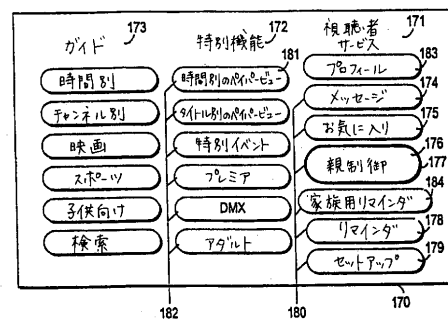 ガイド 173
時間別
チャンネル別
映画
スポーツ
子供向け
検索
特別機能 172
181
時間別のペイパービュー
タイトル別のペイパービュー
特別イベント
プレミア
DMX
アダルト
182
視聴者
サービス 171
プロフィール 183
メッセージ 174
お気に入り 175
親制御 176
177
家族用リマインダ 184
リマインダ 178
セットアップ 179
180
170